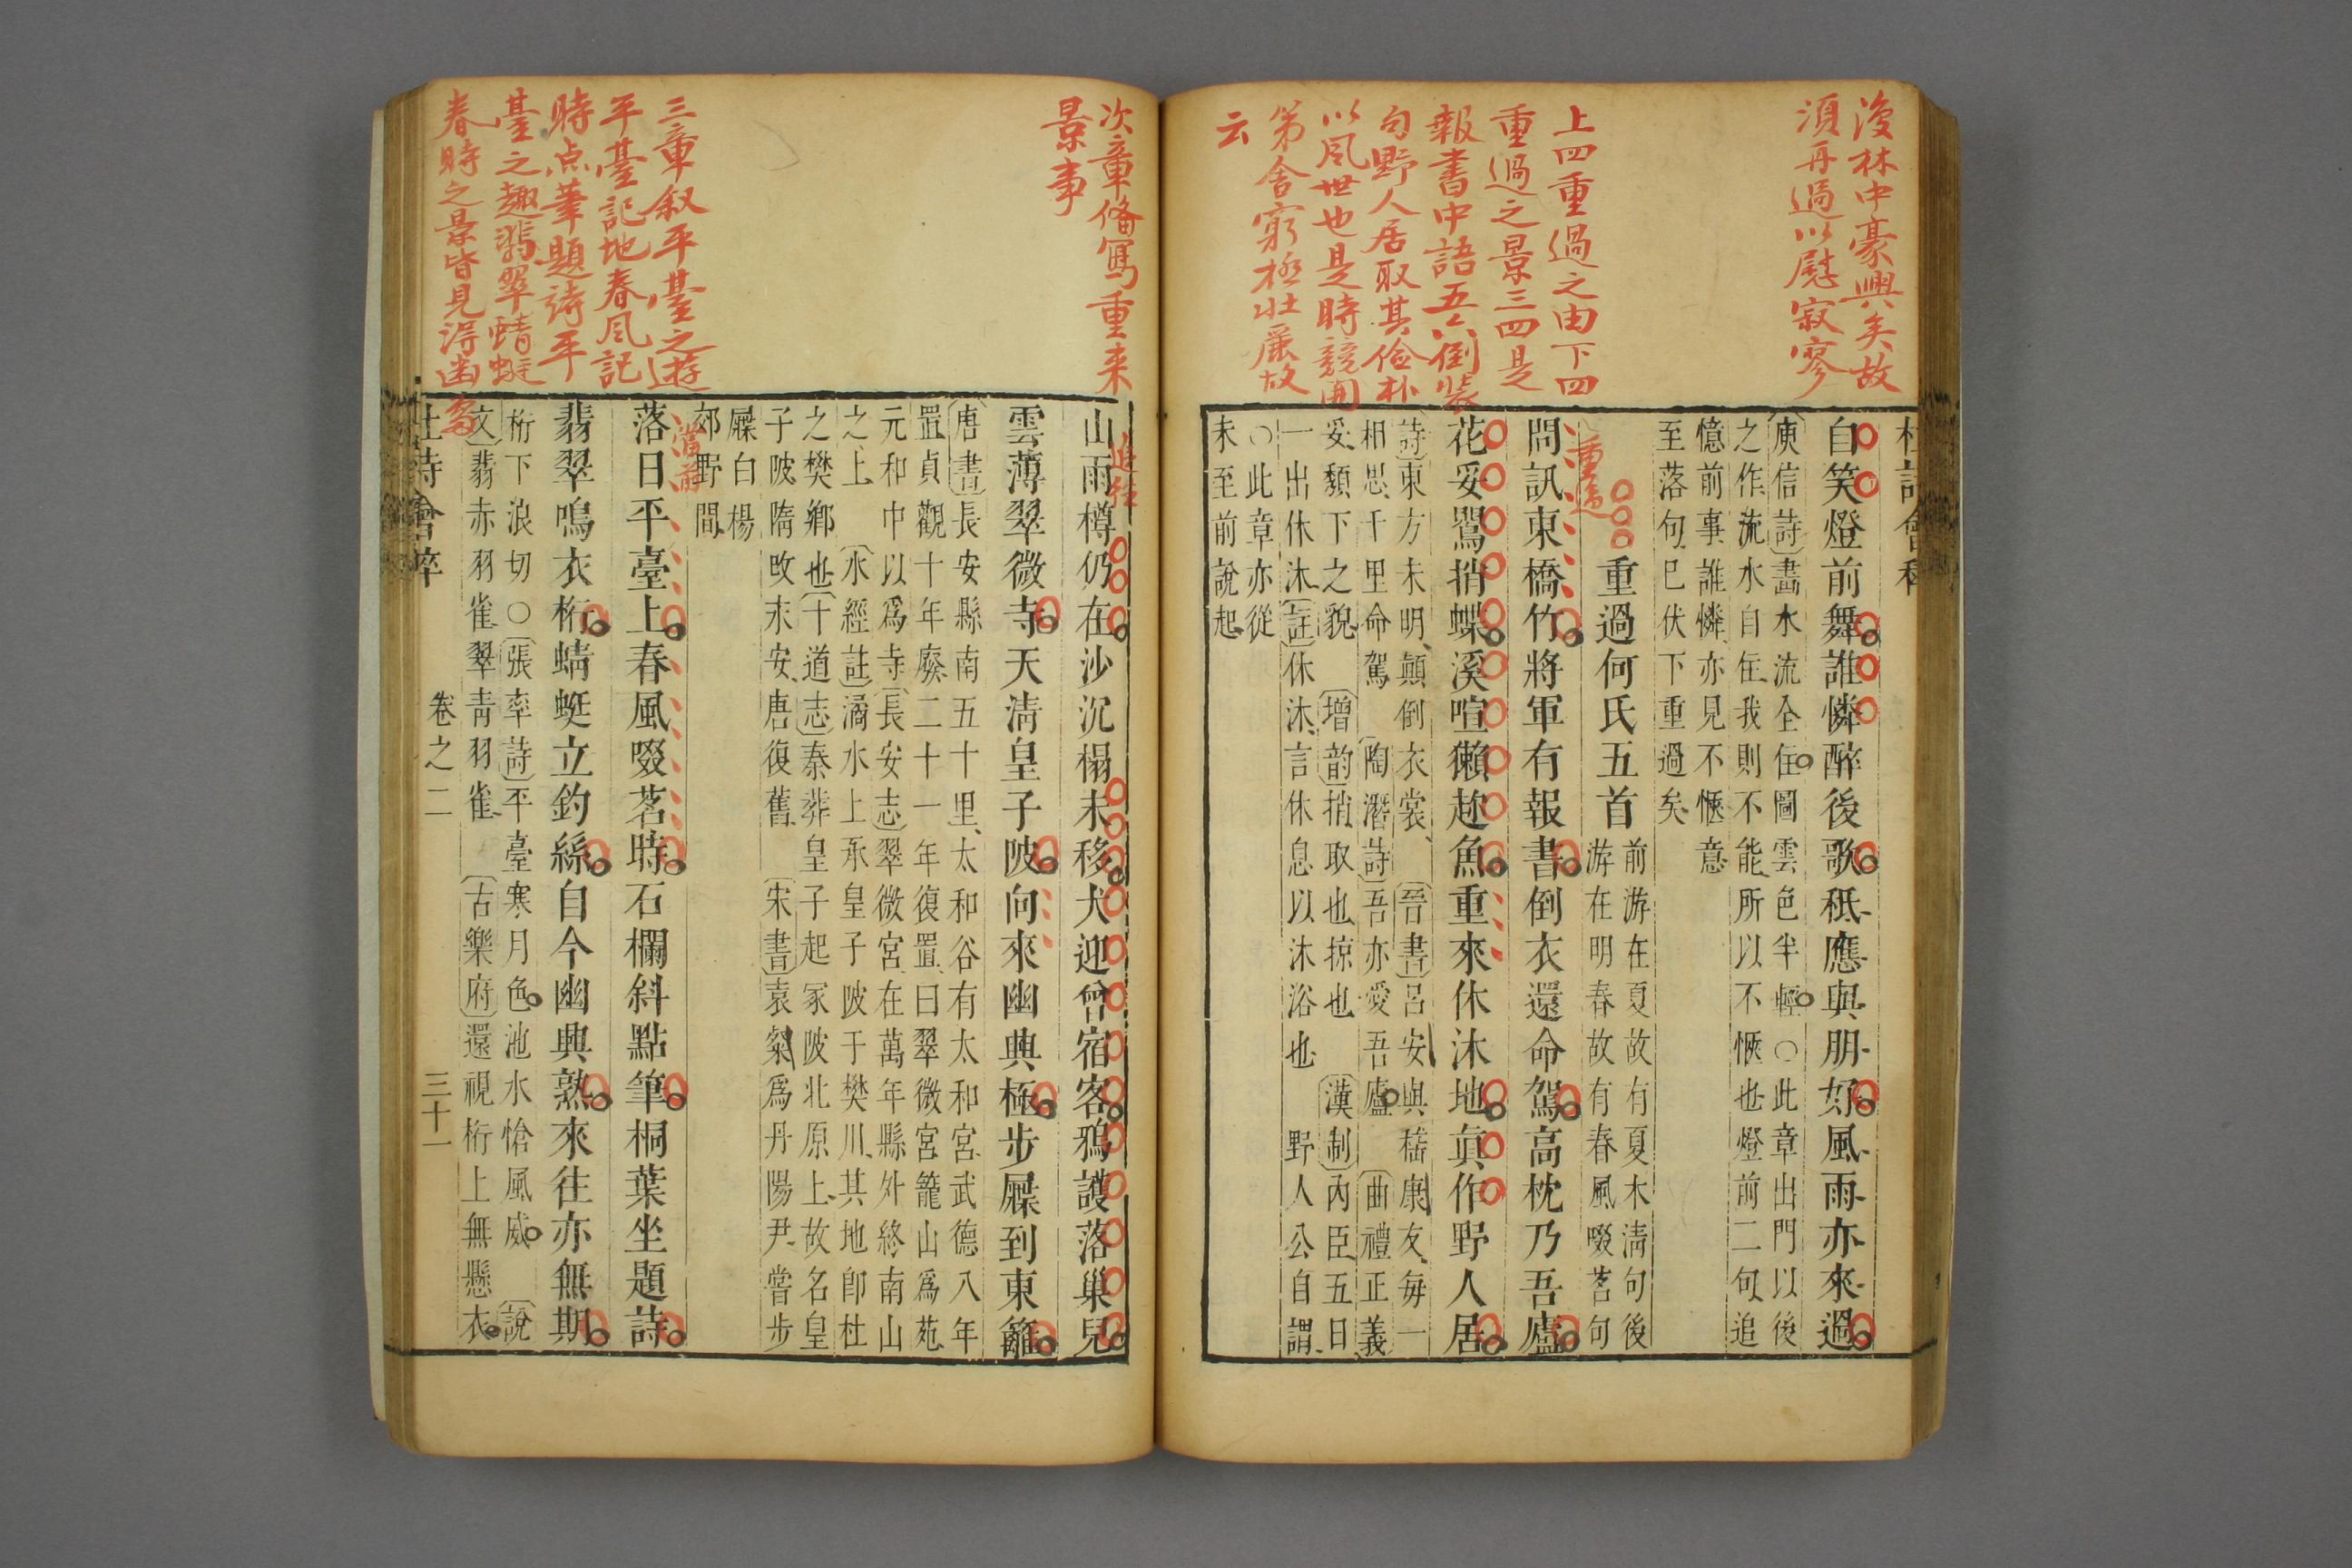 復林中豪興矣故
須再過以慰寂寥
上四重過之由下四
重過之景三四是
報書中語五六倒裝
句野人居取其儉朴
以風世也是時競開
第舍窮極壯麗故
云
自笑燈前舞誰憐醉後歌秖應與朋好風雨亦來過
庾信詩畵水流全住圖雲色半輕○此章出門以後
之作流水自住我則不能所以不愜也燈前二句追
憶前事誰憐亦見不愜意
至落句已伏下重過矣
重過何氏五首
前游在夏故有夏木淸句後
游在明春故有春風啜茗句
重過
問訊東橋竹將軍有報書倒衣還命駕高枕乃吾廬
花妥鸎捎蝶溪喧獺趂魚重來休沐地眞作野人居
詩東方未明顚倒衣裳 晉書呂安與嵇康友每一
相思千里命駕 陶潛詩吾亦愛吾廬 曲禮正義
妥頽下之貌 增韵捎取也掠也 漢制內臣五日
一出休沐註休沐言休息以沐浴也 野人公自謂
○此章亦從
未至前說起
次章備寫重来
景事
追往
山雨樽仍在沙沉榻未移犬迎曾宿客鴉護落巢兒
雲薄翠微寺天淸皇子陂向來幽興極步屧到東籬
唐書長安縣南五十里太和谷有太和宮武德八年
置貞觀十年廢二十一年復置曰翠微宮籠山爲苑
元和中以爲寺長安志翠微宮在萬年縣外終南山
之上 水經註潏水上承皇子陂于樊川其地卽杜
之樊鄉也十道志秦葬皇子起冢陂北原上故名皇
子陂隋改永安唐復舊 宋書袁粲爲丹陽尹嘗步
屧白楊
郊野間
三章叙平臺之遊
平臺記地春風記
時点筆題詩平
臺之趣翡翠蜻蜓
春時之景皆見得幽
當前
落日平臺上春風啜茗時石欄斜點筆桐葉坐題詩
翡翠鳴衣桁蜻蜓立釣絲自今幽興熟來往亦無期
桁下浪切○張率詩平臺寒月色池水愴風威 說
文翡赤羽雀翠青羽雀 古樂府還視桁上無懸衣
卷之二
三十一